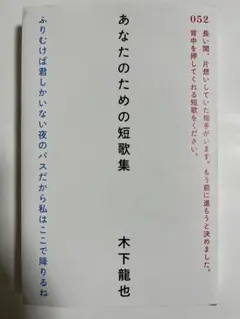 052
長い間、片想いしていた相手がいます。もう前に進もうと決めました。
背中を押してくれる短歌をください。
あなたのための短歌集
木下龍也
ふりむけば君しかいない夜のバスだから私はここで降りるね